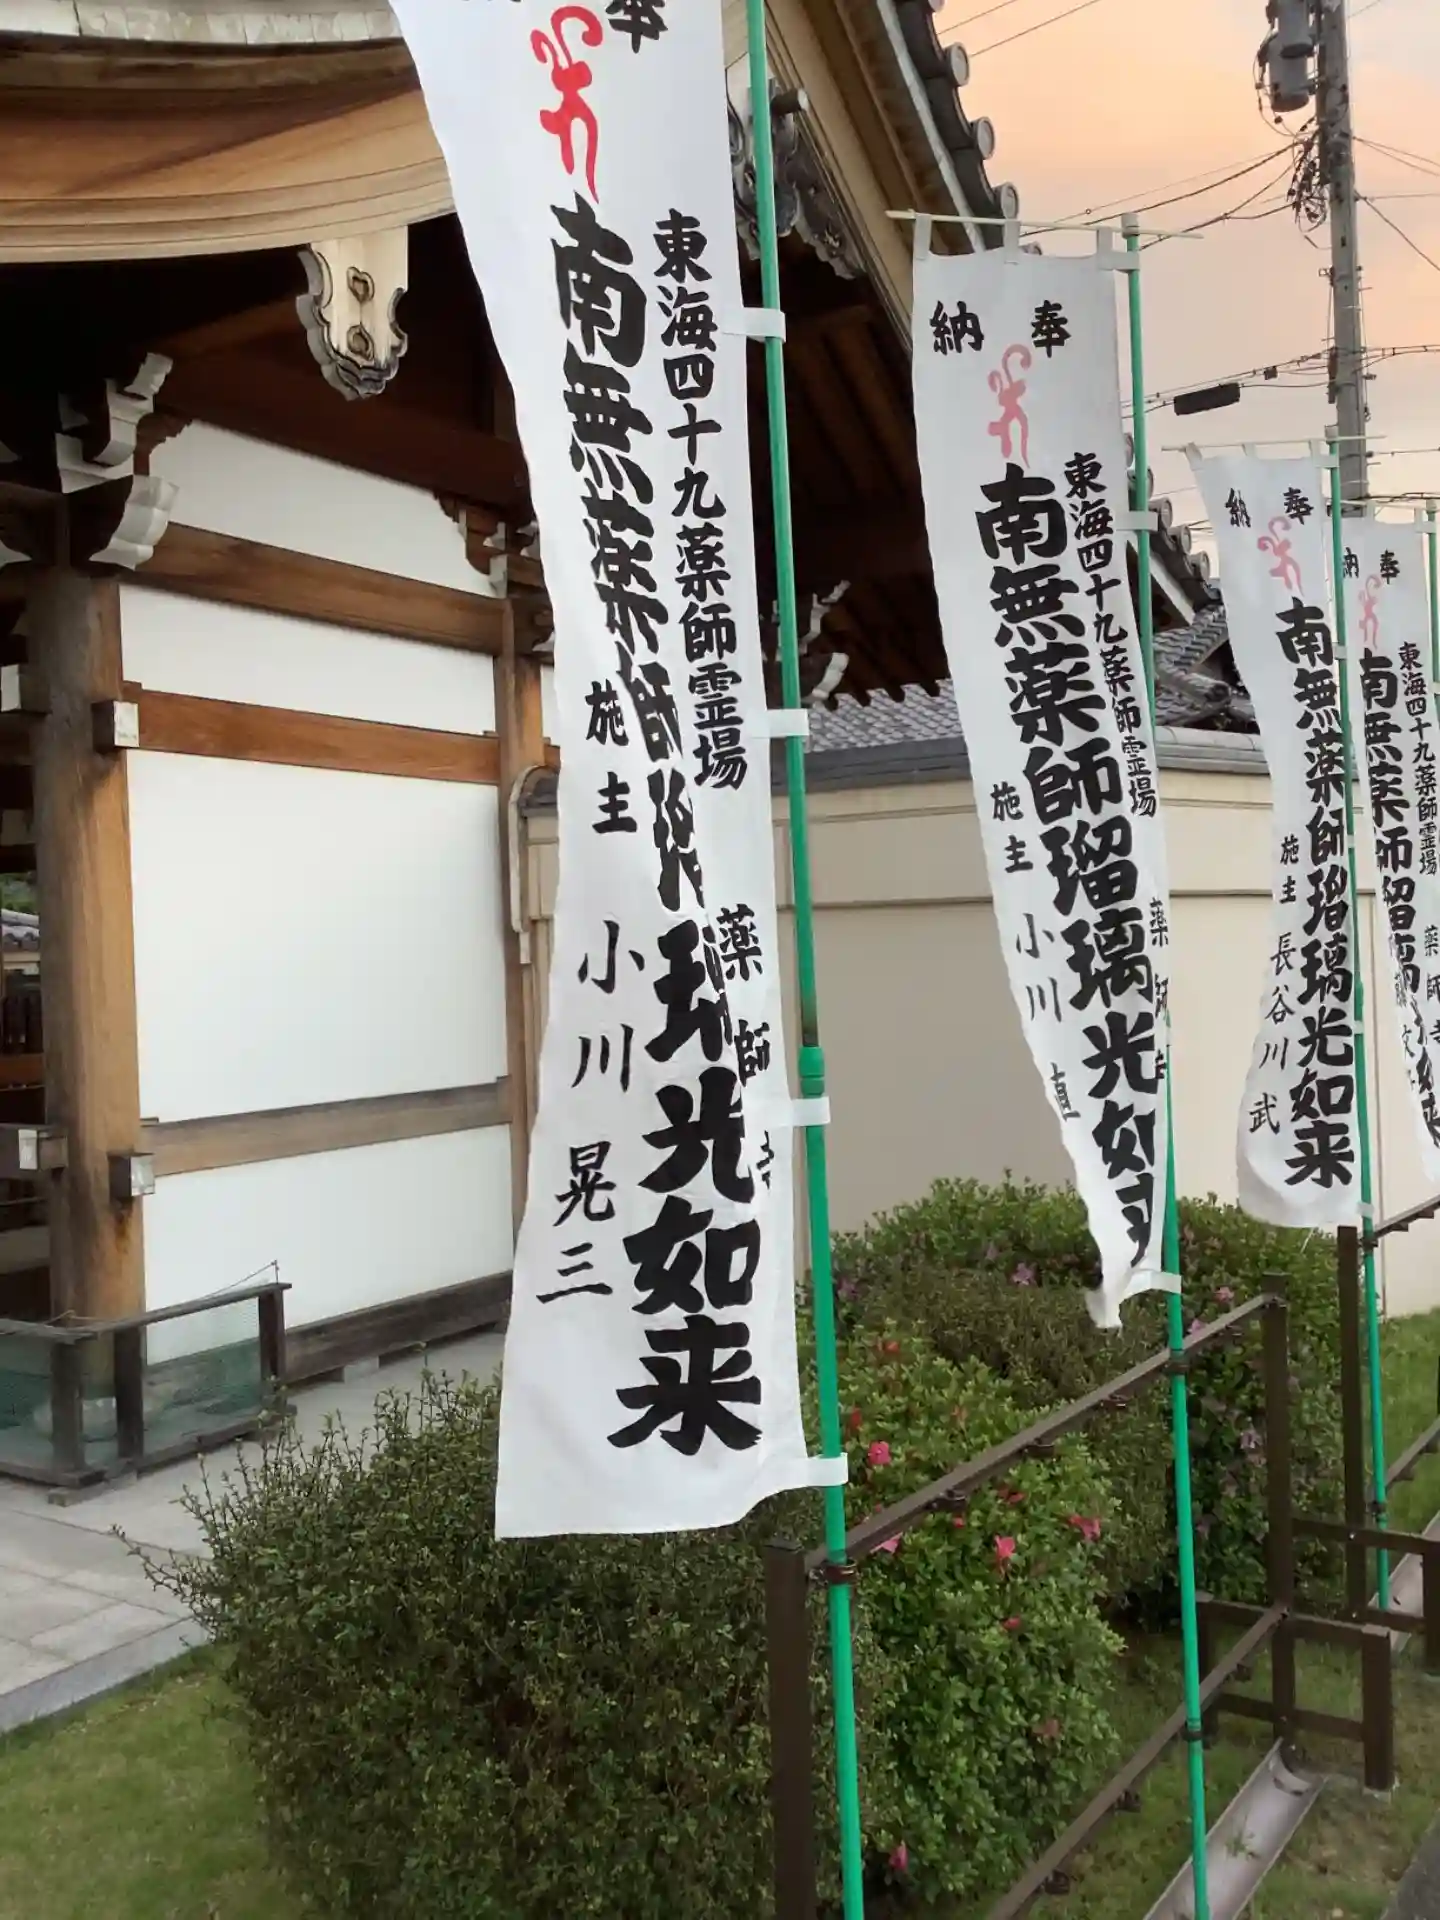 奉納
東海四十九薬師霊場
南無薬師瑠璃光如来
薬師寺
施主 小川晃三
奉納
東海四十九薬師霊場
南無薬師瑠璃光如来
薬師寺
施主 小川 直
奉納
南無薬師瑠璃光如来
施主 長谷川武
奉納
東海四十九薬師霊場
南無薬師瑠璃光如来
薬師寺